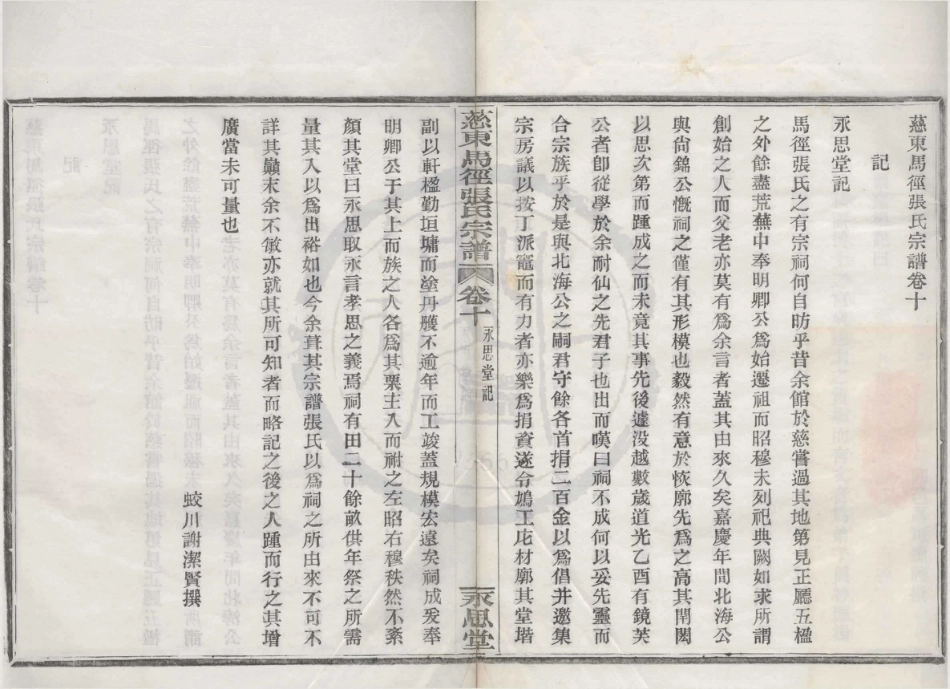 慈東馬徑張氏宗譜卷十
記
永思堂記
馬徑張氏之有宗祠何自昉乎昔余館於慈嘗過其地第見正廳五楹
之外餘盡荒蕪中奉明卿公爲始遷祖而昭穆未列祀典闕如求所謂
創始之人而父老亦莫有爲余言者蓋其由來久矣嘉慶年間北海公
與尙錦公慨祠之僅有其形模也毅然有意於恢廓先爲之高其閈閎
以思次第而踵成之而未竟其事先後遽没越數歲道光乙酉有鏡芙
公者卽從學於余耐仙之先君子也出而嘆曰祠不成何以妥先靈而
合宗族乎於是與北海公之嗣君守餘各首捐二百金以爲倡并邀集
宗房議以按丁派竈而有力者亦樂爲捐資遂台鳩工庀材廓其堂堦
慈東馬徑張氏宗譜 卷十 永思堂記 永思堂
副以軒楹勤垣墉而塗丹雘不逾年而工竣蓋規模宏遠矣祠成爰奉
明卿公于其上而族之人各爲其栗主入而祔之左昭右穆秩然不紊
顏其堂曰永思取永言孝思之義焉祠有田二十餘畝供年祭之所需
量其入以爲出裕如也今余葺其宗譜張氏以爲祠之所由來不可不
詳其巔末余不敏亦就其所可知者而略記之後之人踵而行之其增
廣當未可量也
蛟川謝潔賢撰